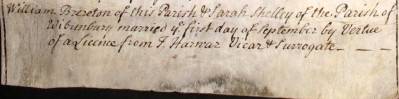 William Brereton of this Parish & Sarah Shelley of the Parish of
Wibunbury married ye first day of September by Vertue
of a Licince from F. Harwar Vicar & Surrogate